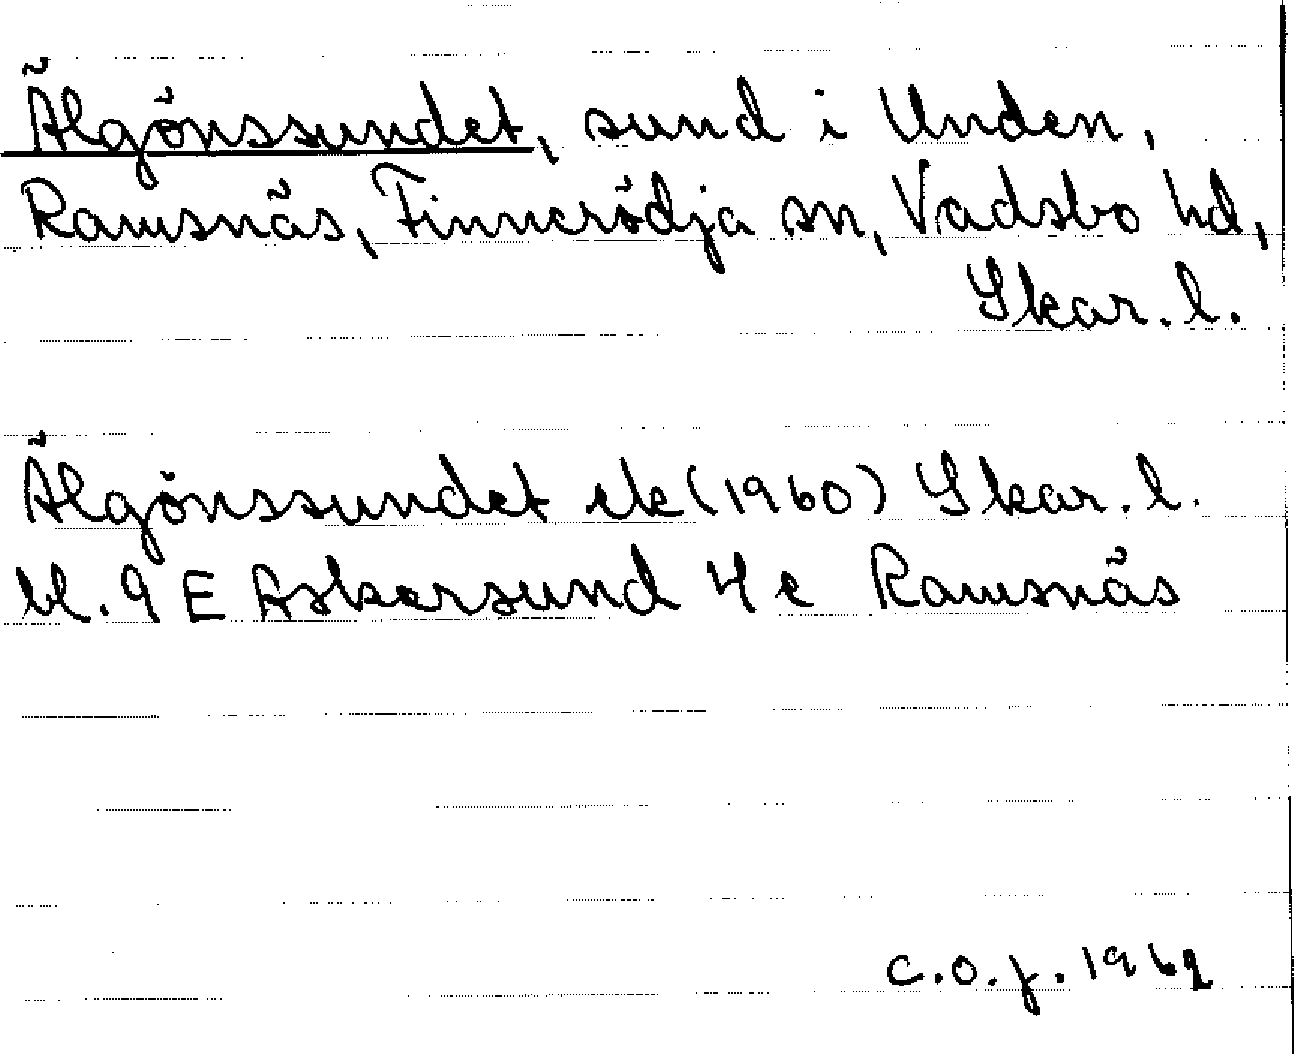 Älgönssundet, sund i Unden,
Ramsnäs, Finnerödja sn, Vadsbo hd,
Skar. l.
Älgönssundet ek (1960) Skar. l.
bl. 9 E Askersund 4 c Ramsnäs
C.O.J. 1969